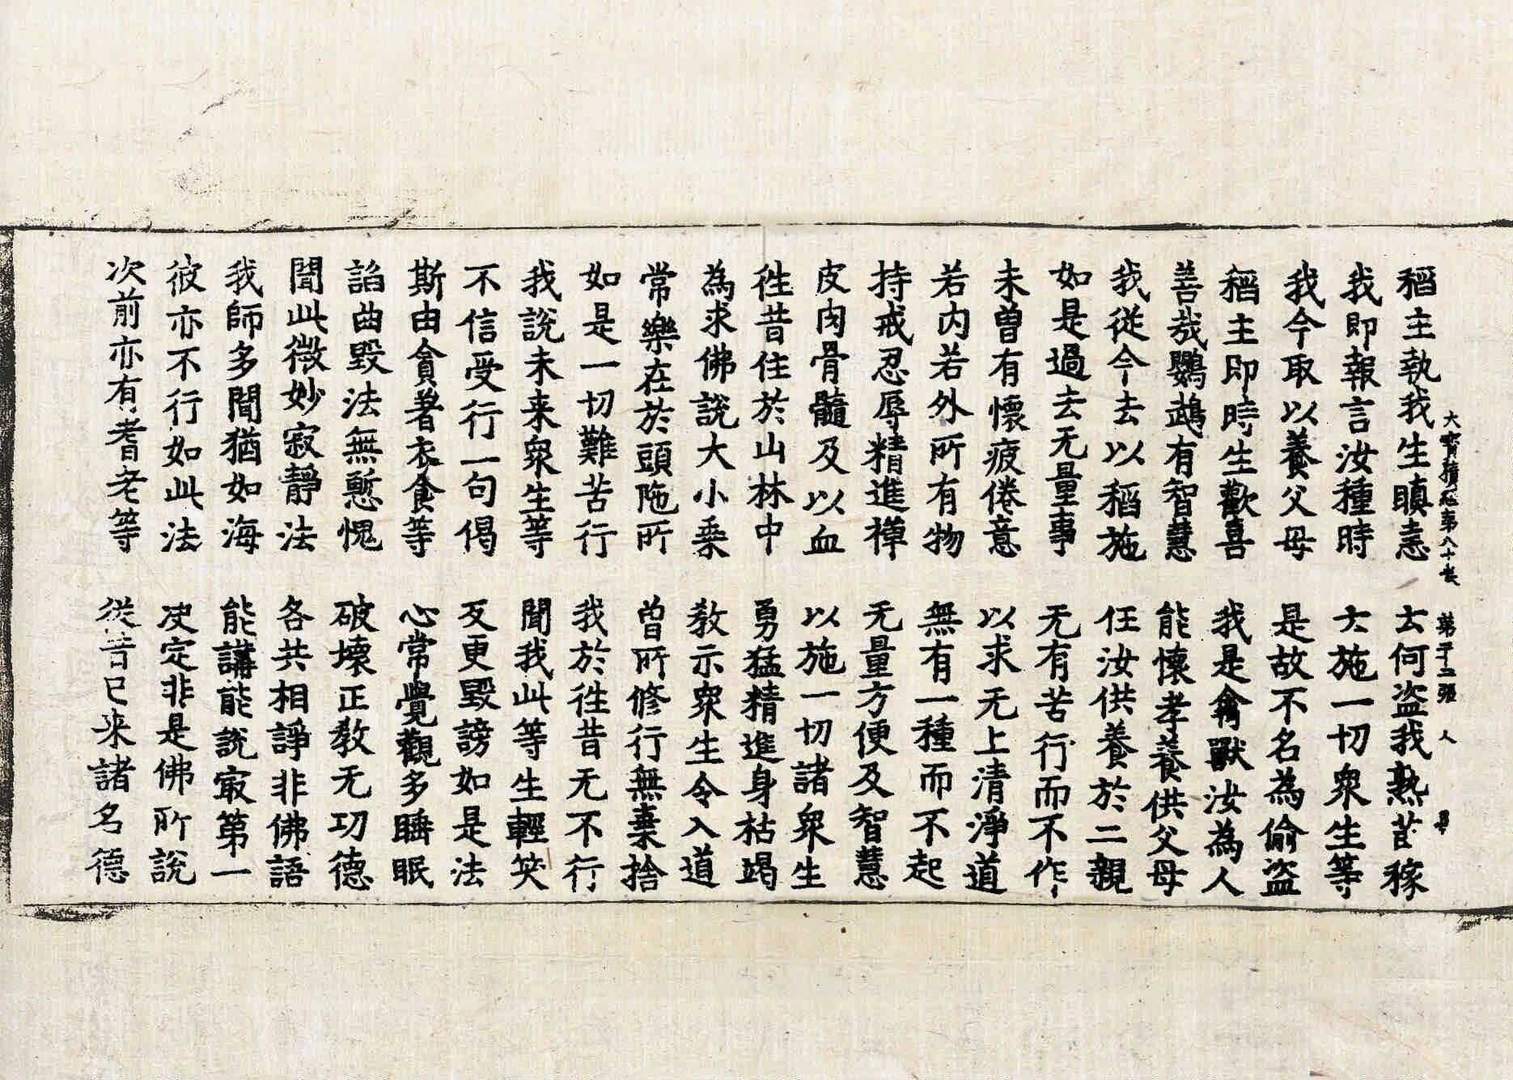 大寶積経第八十卷 第十三張 人
稻主執我生瞋恚 云何盗我熟苗稼
我即報言汝種時 云施一切衆生等
我今取以養父母 是故不名為偷盗
稻主即時生歡喜 我是禽獸汝為人
善哉鸚鵡有智慧 能懷孝養供父母
我従今去以稻施 任汝供養於二親
如是過去无量事 无有苦行而不作
未曽有懷疲倦意 以求无上清淨道
若内若外所有物 無有一種而不起
持戒忍辱精進禪 无量方便及智慧
皮肉骨髓及以血 以施一切諸衆生
徃昔住於山林中 勇猛精進身枯竭
為求佛説大小乗 教示衆生令入道
常樂在於頭陁所 曽所修行無棄捨
如是一切難苦行 我於徃昔无不行
我説未来衆生等 聞我此等生輕笑
不信受行一句偈 反更毀謗如是法
斯由貪著衣食等 心常覺觀多睡眠
諂曲毀法無慙愧 破壊正教无功德
聞此微妙寂靜法 各共相諍非佛語
我師多聞猶如海 能講能説寂第一
彼亦不行如此法 决定非是佛所説
次前亦有耆老等 従昔已来諸名德